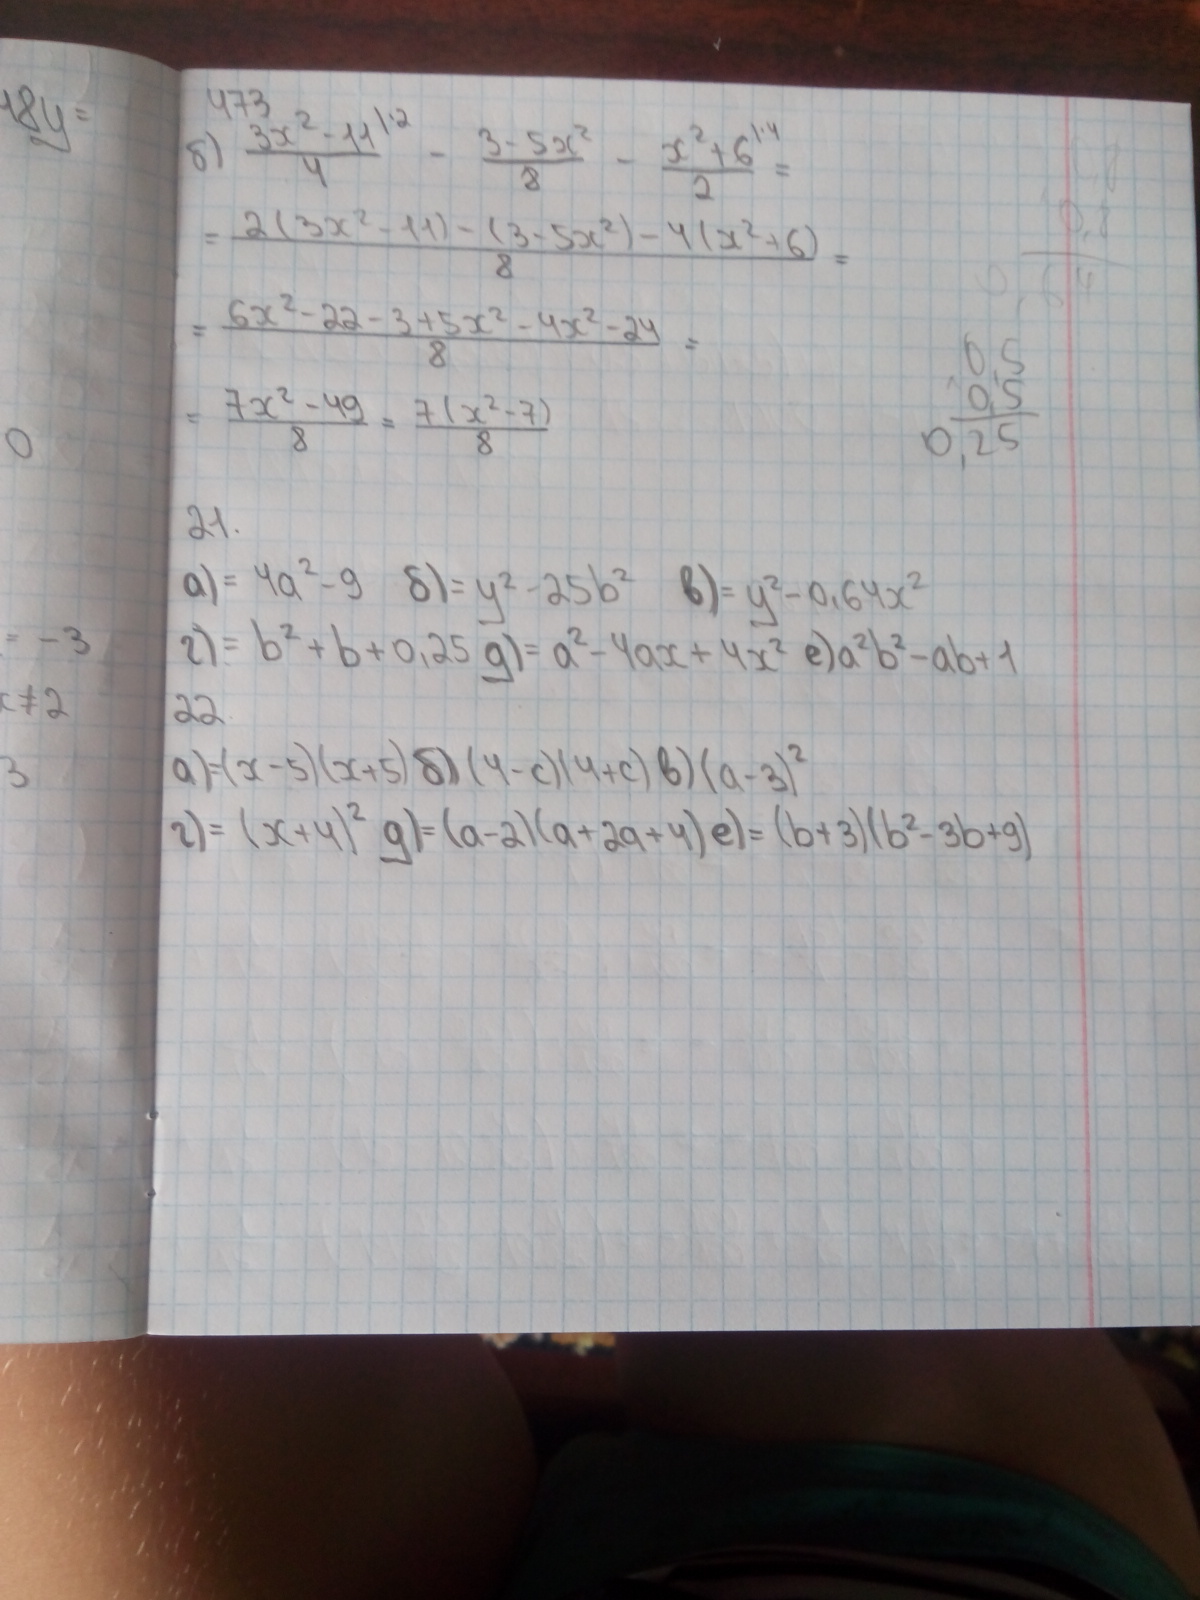 18y=
0
= -3
x≠2
3
473
б) (3x² - 11)/4 |·2 - (3 - 5x²)/8 - (x² + 6)/2 |·4 =
= (2(3x² - 11) - (3 - 5x²) - 4(x² + 6))/8 =
= (6x² - 22 - 3 + 5x² - 4x² - 24)/8 =
= (7x² - 49)/8 = 7(x² - 7)/8
0,8
0,64
0,5
0,5
0,25
21.
а) = 4a² - 9 б) = y² - 25b² в) = y² - 0,64x²
г) = b² + b + 0,25 g) = a² - 4ax + 4x² е) a²b² - ab + 1
22.
а) = (x - 5)(x + 5) б) (4 - c)(4 + c) в) (a - 3)²
г) = (x + 4)² g) = (a - 2)(a + 2a + 4) е) = (b + 3)(b² - 3b + 9)